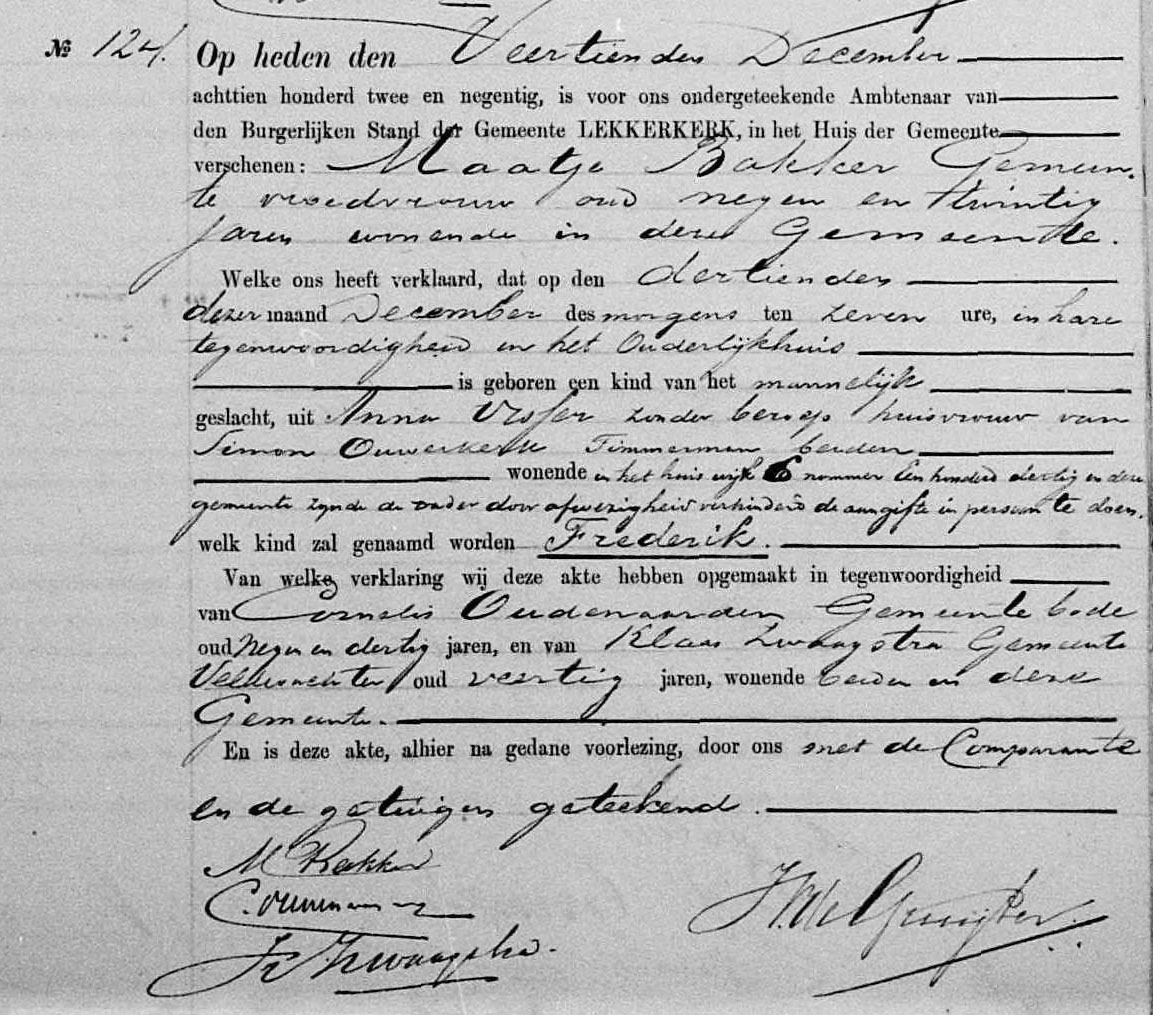 № 124. Op heden den Veertienden December
achttien honderd twee en negentig, is voor ons ondergeteekende Ambtenaar van
den Burgerlijken Stand der Gemeente LEKKERKERK, in het Huis der Gemeente
verschenen: Maatje Bakker Gemeen-
te vroedvrouw oud negen en twintig
Jaren wonende in deze Gemeente.
Welke ons heeft verklaard, dat op den dertienden
dezer maand December des morgens ten zeven ure, in hare
tegenwoordigheid in het Ouderlijkhuis
is geboren een kind van het mannelijk
geslacht, uit Anna Visser zonder beroep huisvrouw van
Simon Ouwerkerk Timmerman beiden
wonende in het huis wijk 6 nommer Een honderd dertig in deze
gemeente zijnde de vader door afwezigheid verhinderd de aangifte in persoon te doen.
welk kind zal genaamd worden Frederik.
Van welke verklaring wij deze akte hebben opgemaakt in tegenwoordigheid
van Cornelis Oudenaarden Gemeente bode
oud Negen en dertig jaren, en van Klaas Zwaagstra Gemeente
Veldwachter oud veertig jaren, wonende beiden in deze
Gemeente.
En is deze akte, alhier na gedane voorlezing, door ons met de Comparante
en de getuigen geteekend.
M Bakker
C. Oudenaarden
K Zwaagstra.